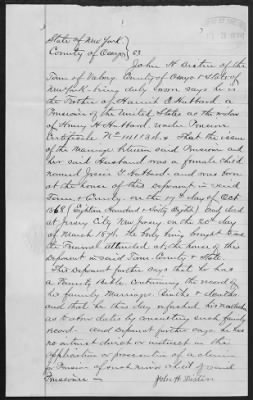 State of New York
County of Oswego } SS
John H. Distin of the
Town of Volney County of Oswego & State of
New York being duly sworn says he is
the Brother of Harriet D Hubbard a
Pensioner of the United States as the widow
of Henry H Hubbard under Pension
Certificate No 141136. That the issue
of the Marriage between said Pensioner and
her said Husband was a female child
named Jessie G Hubbard and was born
at the house of this deponent in said
Town & County on the 17th day of Oct
1868 (Eighteen Hundred & Sixty Eight) and died
at Jersey City New Jersey on the day
of March 1876. the body being brought home
the Funeral attended at the house of this
deponent in said Town County & State.
This Deponent further says that he has
a Family Bible Containing the record of
his family Marriages Births & deaths
and that he this day refreshed his recollection
as to above dates by consulting such family
record. And deponent further says he has
no interest direct or indirect in the
application or prosecution of a claim
for Pension of such minor child of said
Pensioner
John H. Distin